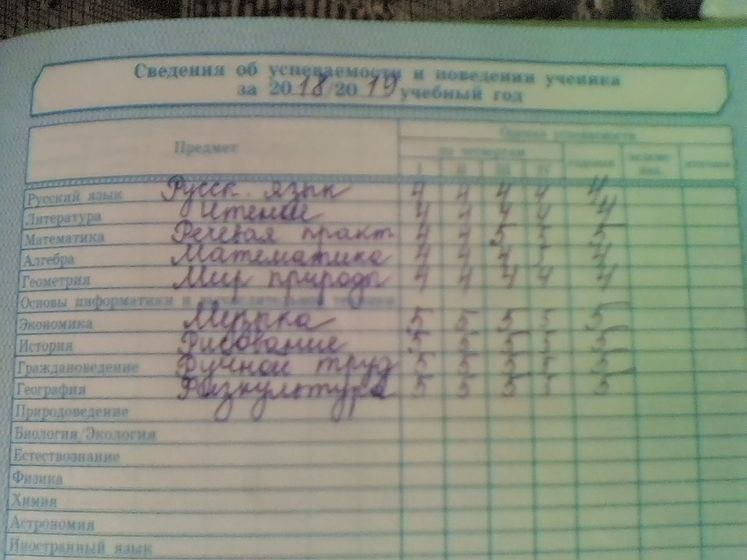 Сведения об успеваемости и поведении ученика
за 2018/2019 учебный год
Предмет Оценка успеваемости
по четвертям
I II III IV годовая экзаме и（то）
Русский язык Русск. язык 4 4 4 4 4
Литература Чтение 4 4 4 4 4
Математика Речевая практ 4 4 5 5 5
Алгебра Математика 4 4 4 5 4
Геометрия Мир природы 4 4 4 4 4
Основы информатики и вычислительной техники
Экономика Музыка 5 5 5 5 5
История Рисование 5 5 5 5 5
Граждановедение Ручной труд 5 5 5 5 5
География Физкультура 5 5 5 5 5
Природоведение
Биология/Экология
Естествознание
Физика
Химия
Астрономия
Иностранный язык